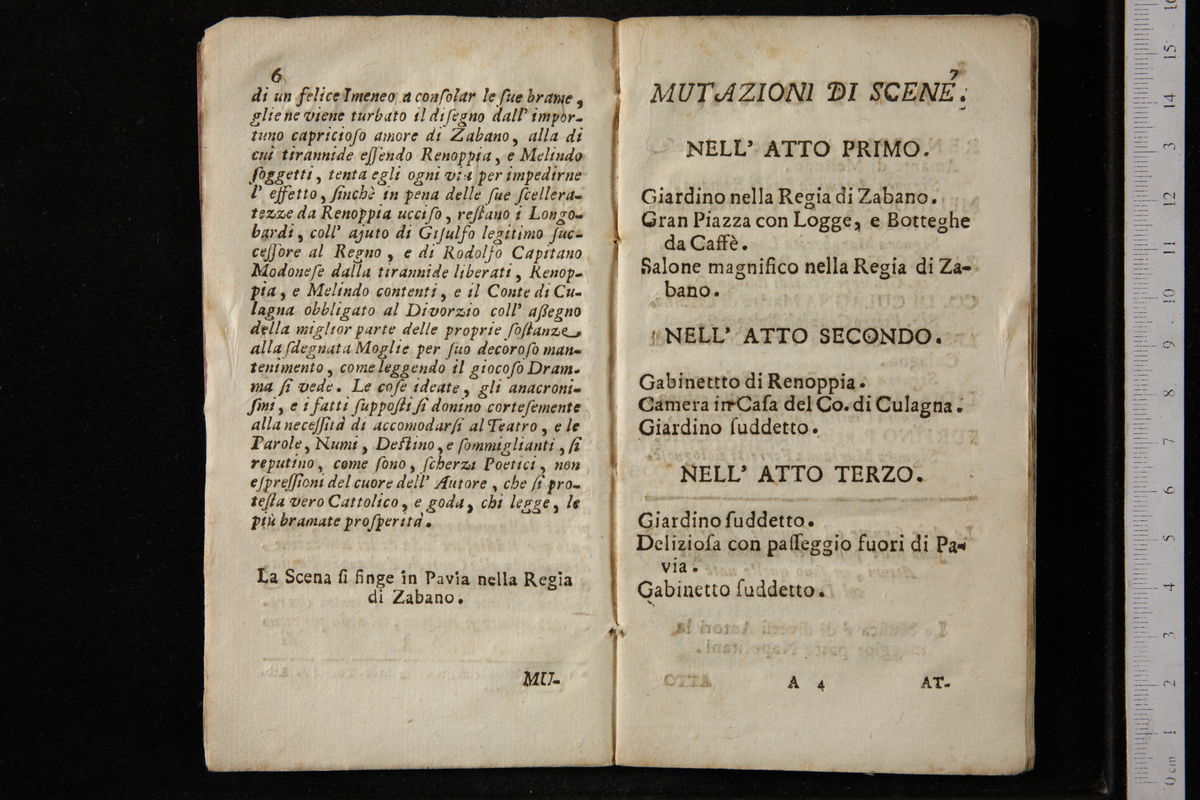 6
di un felice Imeneo a conſolar le ſue brame,
gliene viene turbato il diſegno dall' impor-
tuno capricioſo amore di Zabano, alla di
cui tirannide eſſendo Renoppia, e Melindo
ſoggetti, tenta egli ogni via per impedirne
l' effetto, ſinchè in pena delle ſue ſcellera-
tezze da Renoppia ucciſo, reſtano i Longo-
bardi, coll' ajuto di Giſulfo legitimo ſuc-
ceſſore al Regno, e di Rodolfo Capitano
Modoneſe dalla tirannide liberati, Renop-
pia, e Melindo contenti, e il Conte di Cu-
lagna obbligato al Divorzio coll' aſſegno
della miglior parte delle proprie ſoſtanze
alla ſdegnata Moglie per ſuo decoroſo man-
tenimento, come leggendo il giocoſo Dram-
ma ſi vede. Le coſe ideate, gli anacroni-
ſmi, e i fatti ſuppoſti ſi donino corteſemente
alla neceſſità di accomodarſi al Teatro, e le
Parole, Numi, Deſtino, e ſommiglianti, ſi
reputino, come ſono, ſcherzi Poetici, non
eſpreſſioni del cuore dell' Autore, che ſi pro-
teſta vero Cattolico, e goda, chi legge, le
più bramate proſperità.
La Scena ſi finge in Pavia nella Regia
di Zabano.
MU-
7
MUTAZIONI DI SCENE.
NELL' ATTO PRIMO.
Giardino nella Regia di Zabano.
Gran Piazza con Logge, e Botteghe
da Caffè.
Salone magnifico nella Regia di Za-
bano.
NELL' ATTO SECONDO.
Gabinettto di Renoppia.
Camera in Caſa del Co. di Culagna.
Giardino ſuddetto.
NELL' ATTO TERZO.
Giardino ſuddetto.
Delizioſa con paſſeggio fuori di Pa-
via.
Gabinetto ſuddetto.
A 4
AT-
0 cm 1 2 3 4 5 6 7 8 9 10 11 12 13 14 15 16